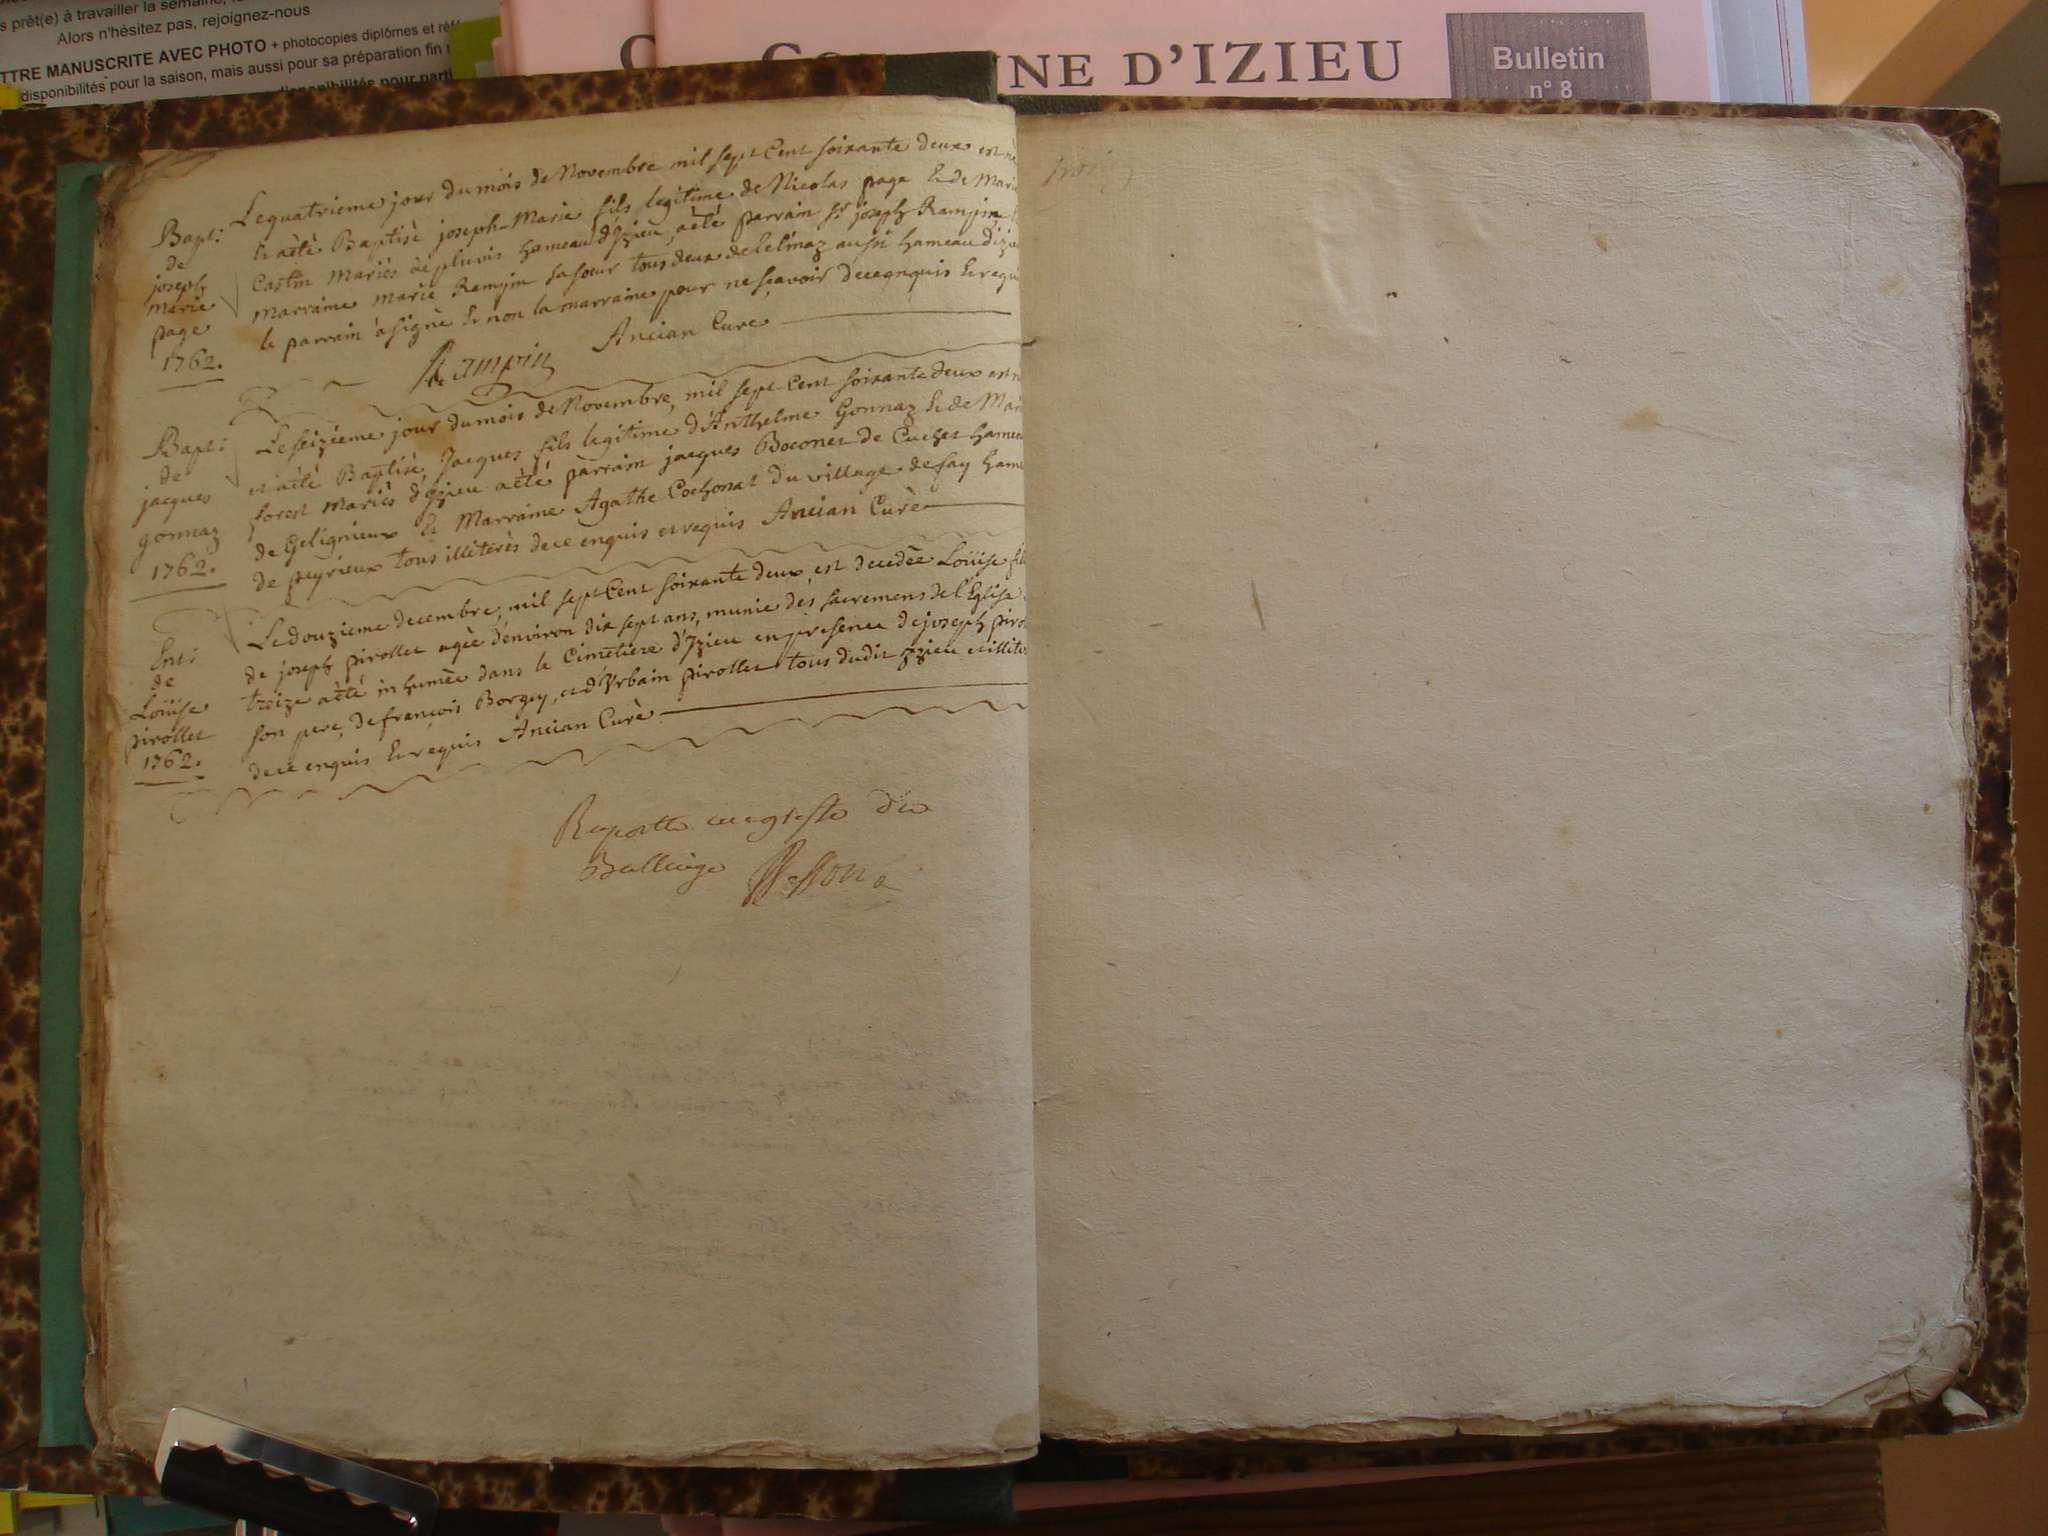 s prêt(e) à travailler la semaine,
Alors n'hésitez pas, rejoignez-nous
TTRE MANUSCRITE AVEC PHOTO + photocopies diplômes et réf
disponibilités pour la saison, mais aussi pour sa préparation fin
disponibilités pour parti
NE D'IZIEU
Bulletin
n° 8
Bapt:
de
joseph
marie
page
1762.
Le quatrieme jour du mois de Novembre mil sept Cent soixante deux est né
et àèté Baptisè joseph-Marie fils legitime de Nicolas page et de Marie
Castin mariès de pluvis hameau d'Izieu, àèté parrain sr joseph Rampin
marraine marie Rampin sa sœur tous deux de Lelinaz aussi hameau d'izieu
le parrain à signè et non la marraine pour ne sçavoir de ce enquis et requis
Rampin Ancian Cure
Bapt:
de
jacques
gonnaz
1762.
Le seizieme jour du mois de Novembre, mil sept Cent soixante deux est né
et àèté Baptisè Jacques fils legitime d'Anthelme Gonnaz et de Marie
forest mariès d'izieu àèté parrain jacques Boconet de Cuchet hameau
de Gelignieux et Marraine Agathe Cochonat du village de fay hame
de peyrieux tous illiterès de ce enquis et requis Ancian Curè
Ent:
de
Loüise
pirollet
1762.
Le douzieme decembre, mil sept Cent soixante deux est decedèe Loüise fille
de joseph pirollet agèe d'environ dix sept ans, munie des sacremens de l'Eglise
treize àèté inhumèe dans le Cimetiere d'Izieu en presence de joseph piro
son pere, de françois Borgey, et d'Urbain pirollet tous dudit izieu et illite
de ce enquis et requis Ancian Curè
du